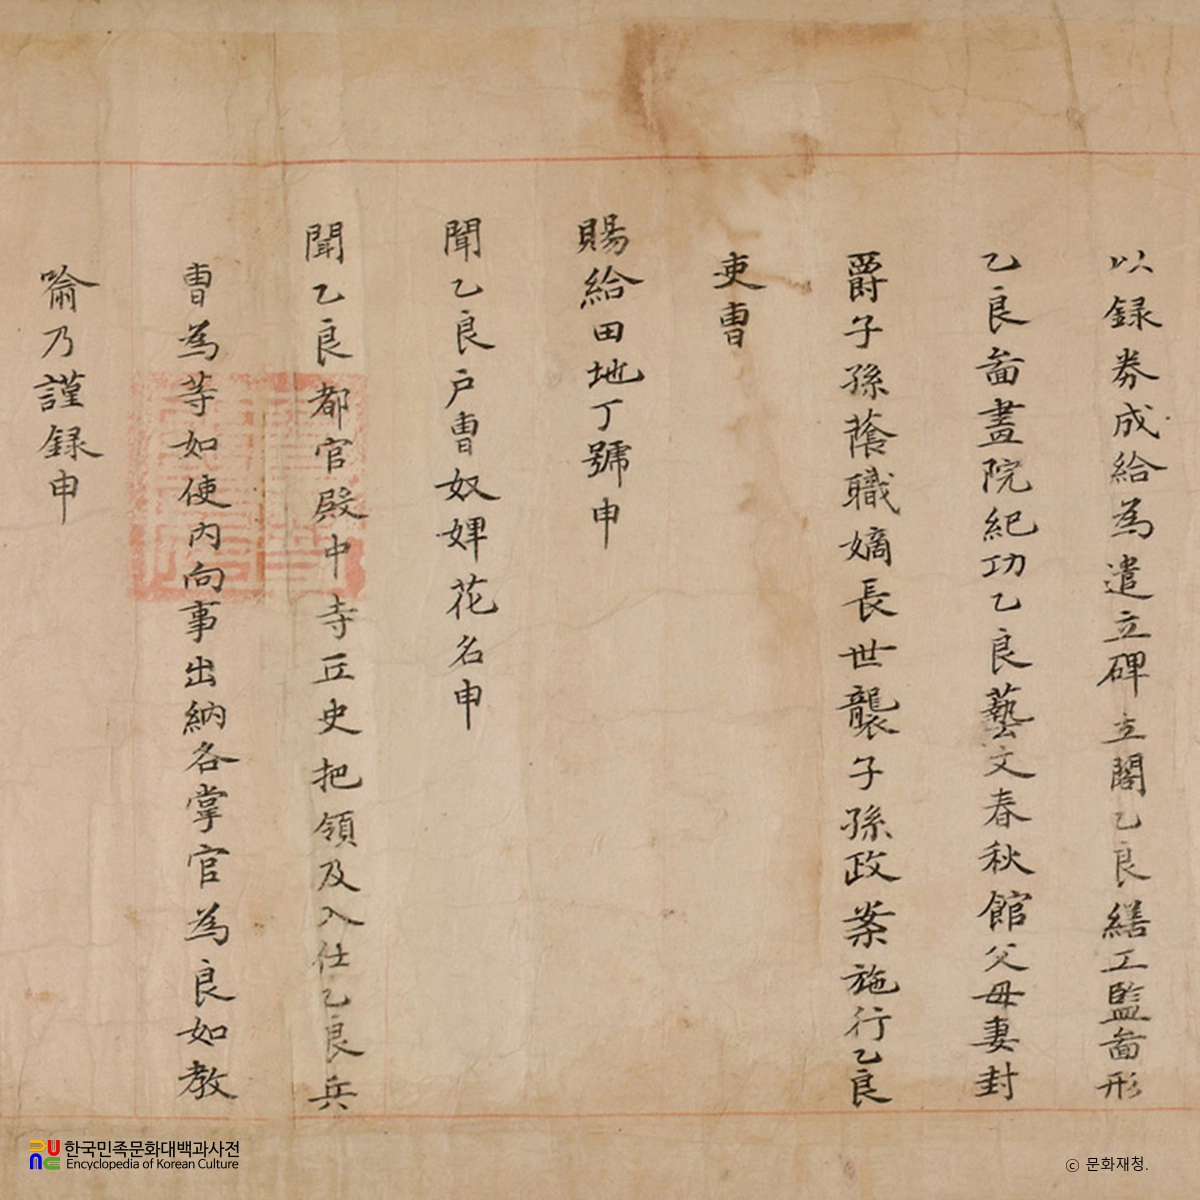 以録券成給為遣立碑立閣乙良繕工監畣形
乙良畣畫院紀功乙良藝文春秋館父母妻封
爵子孫蔭職嫡長世襲子孫政案施行乙良
吏曹
賜給田地丁號申
聞乙良戶曹奴婢花名申
聞乙良都官殿中寺丘史把領及入仕乙良兵
曹為等如使內向事出納各掌官為良如教
喻乃謹録申
한국민족문화대백과사전
Encyclopedia of Korean Culture
ⓒ 문화재청.